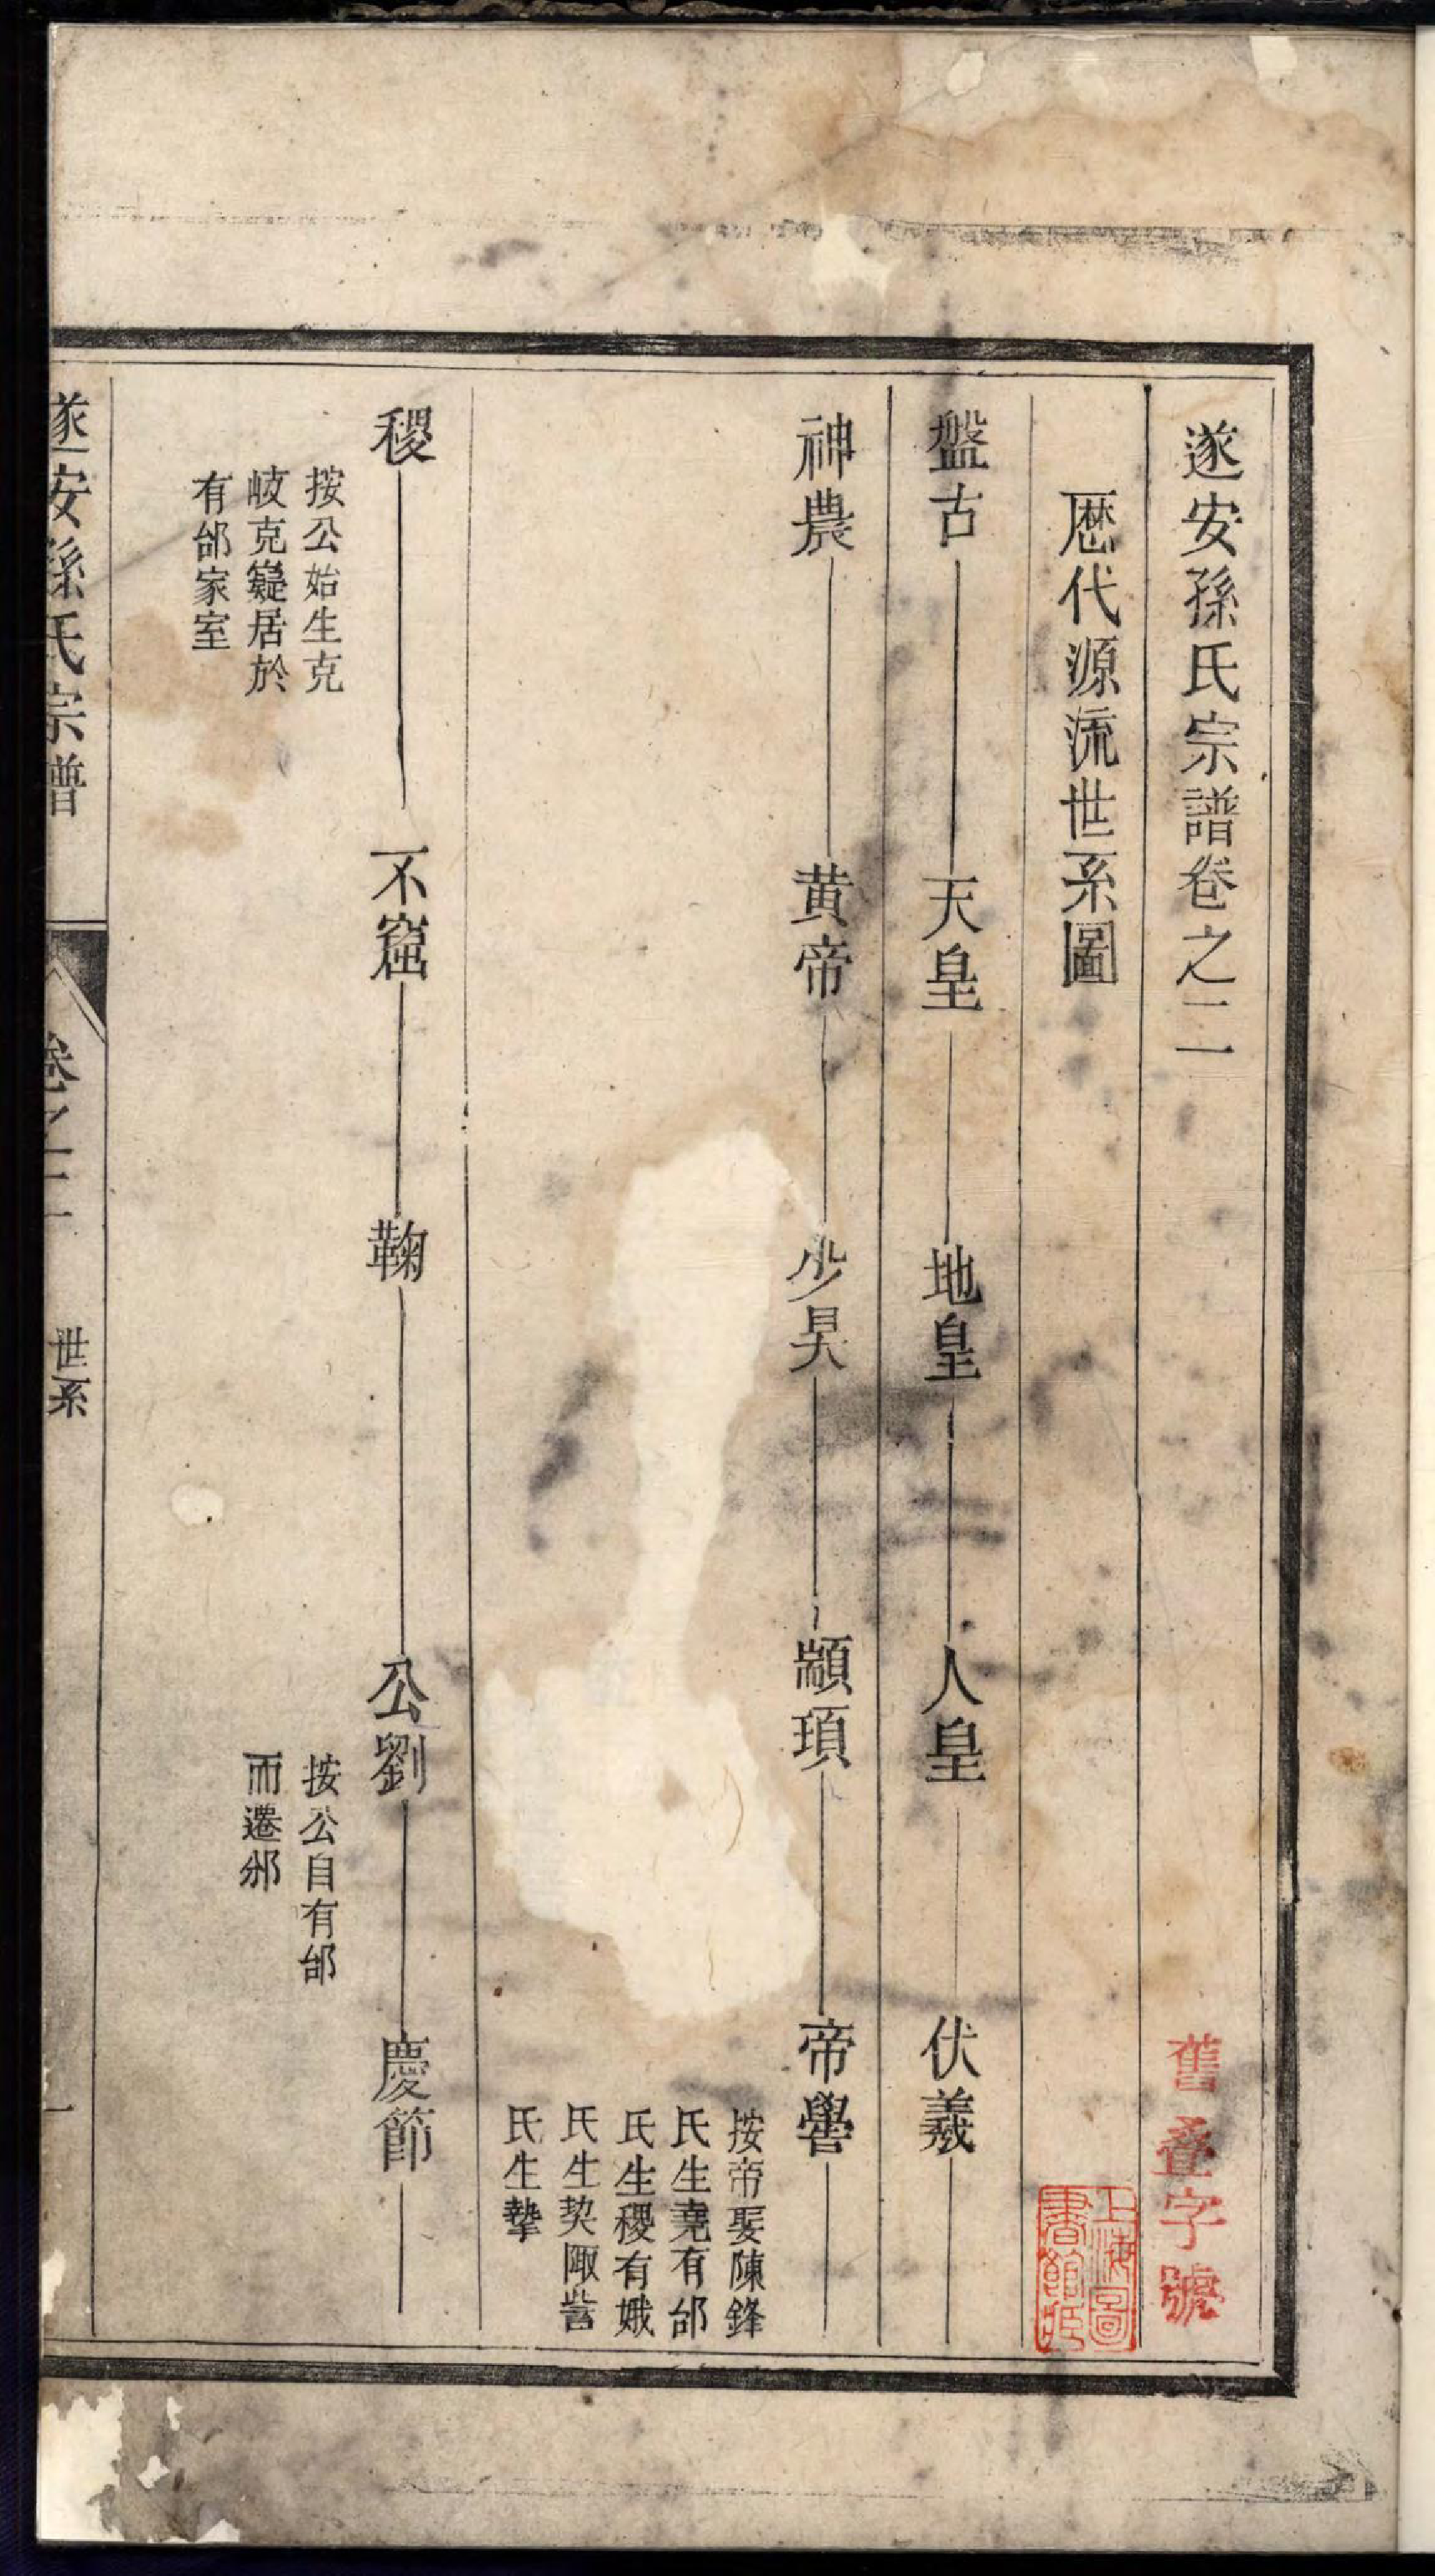 遂安孫氏宗譜卷之二
舊叠字號
上海圖
書館藏
厯代源流世系圖
盤古 天皇 地皇 人皇 伏羲
神農 黄帝 少昊 顓頊 帝嚳
按帝娶陳鋒
氏生堯有邰
氏生稷有娀
氏生契陬訾
氏生摯
稷 不窋 鞠 公劉 慶節
按公始生克
岐克嶷居於
有邰家室
按公自有邰
而遷邠
遂安孫氏宗譜 卷之二 世系 一